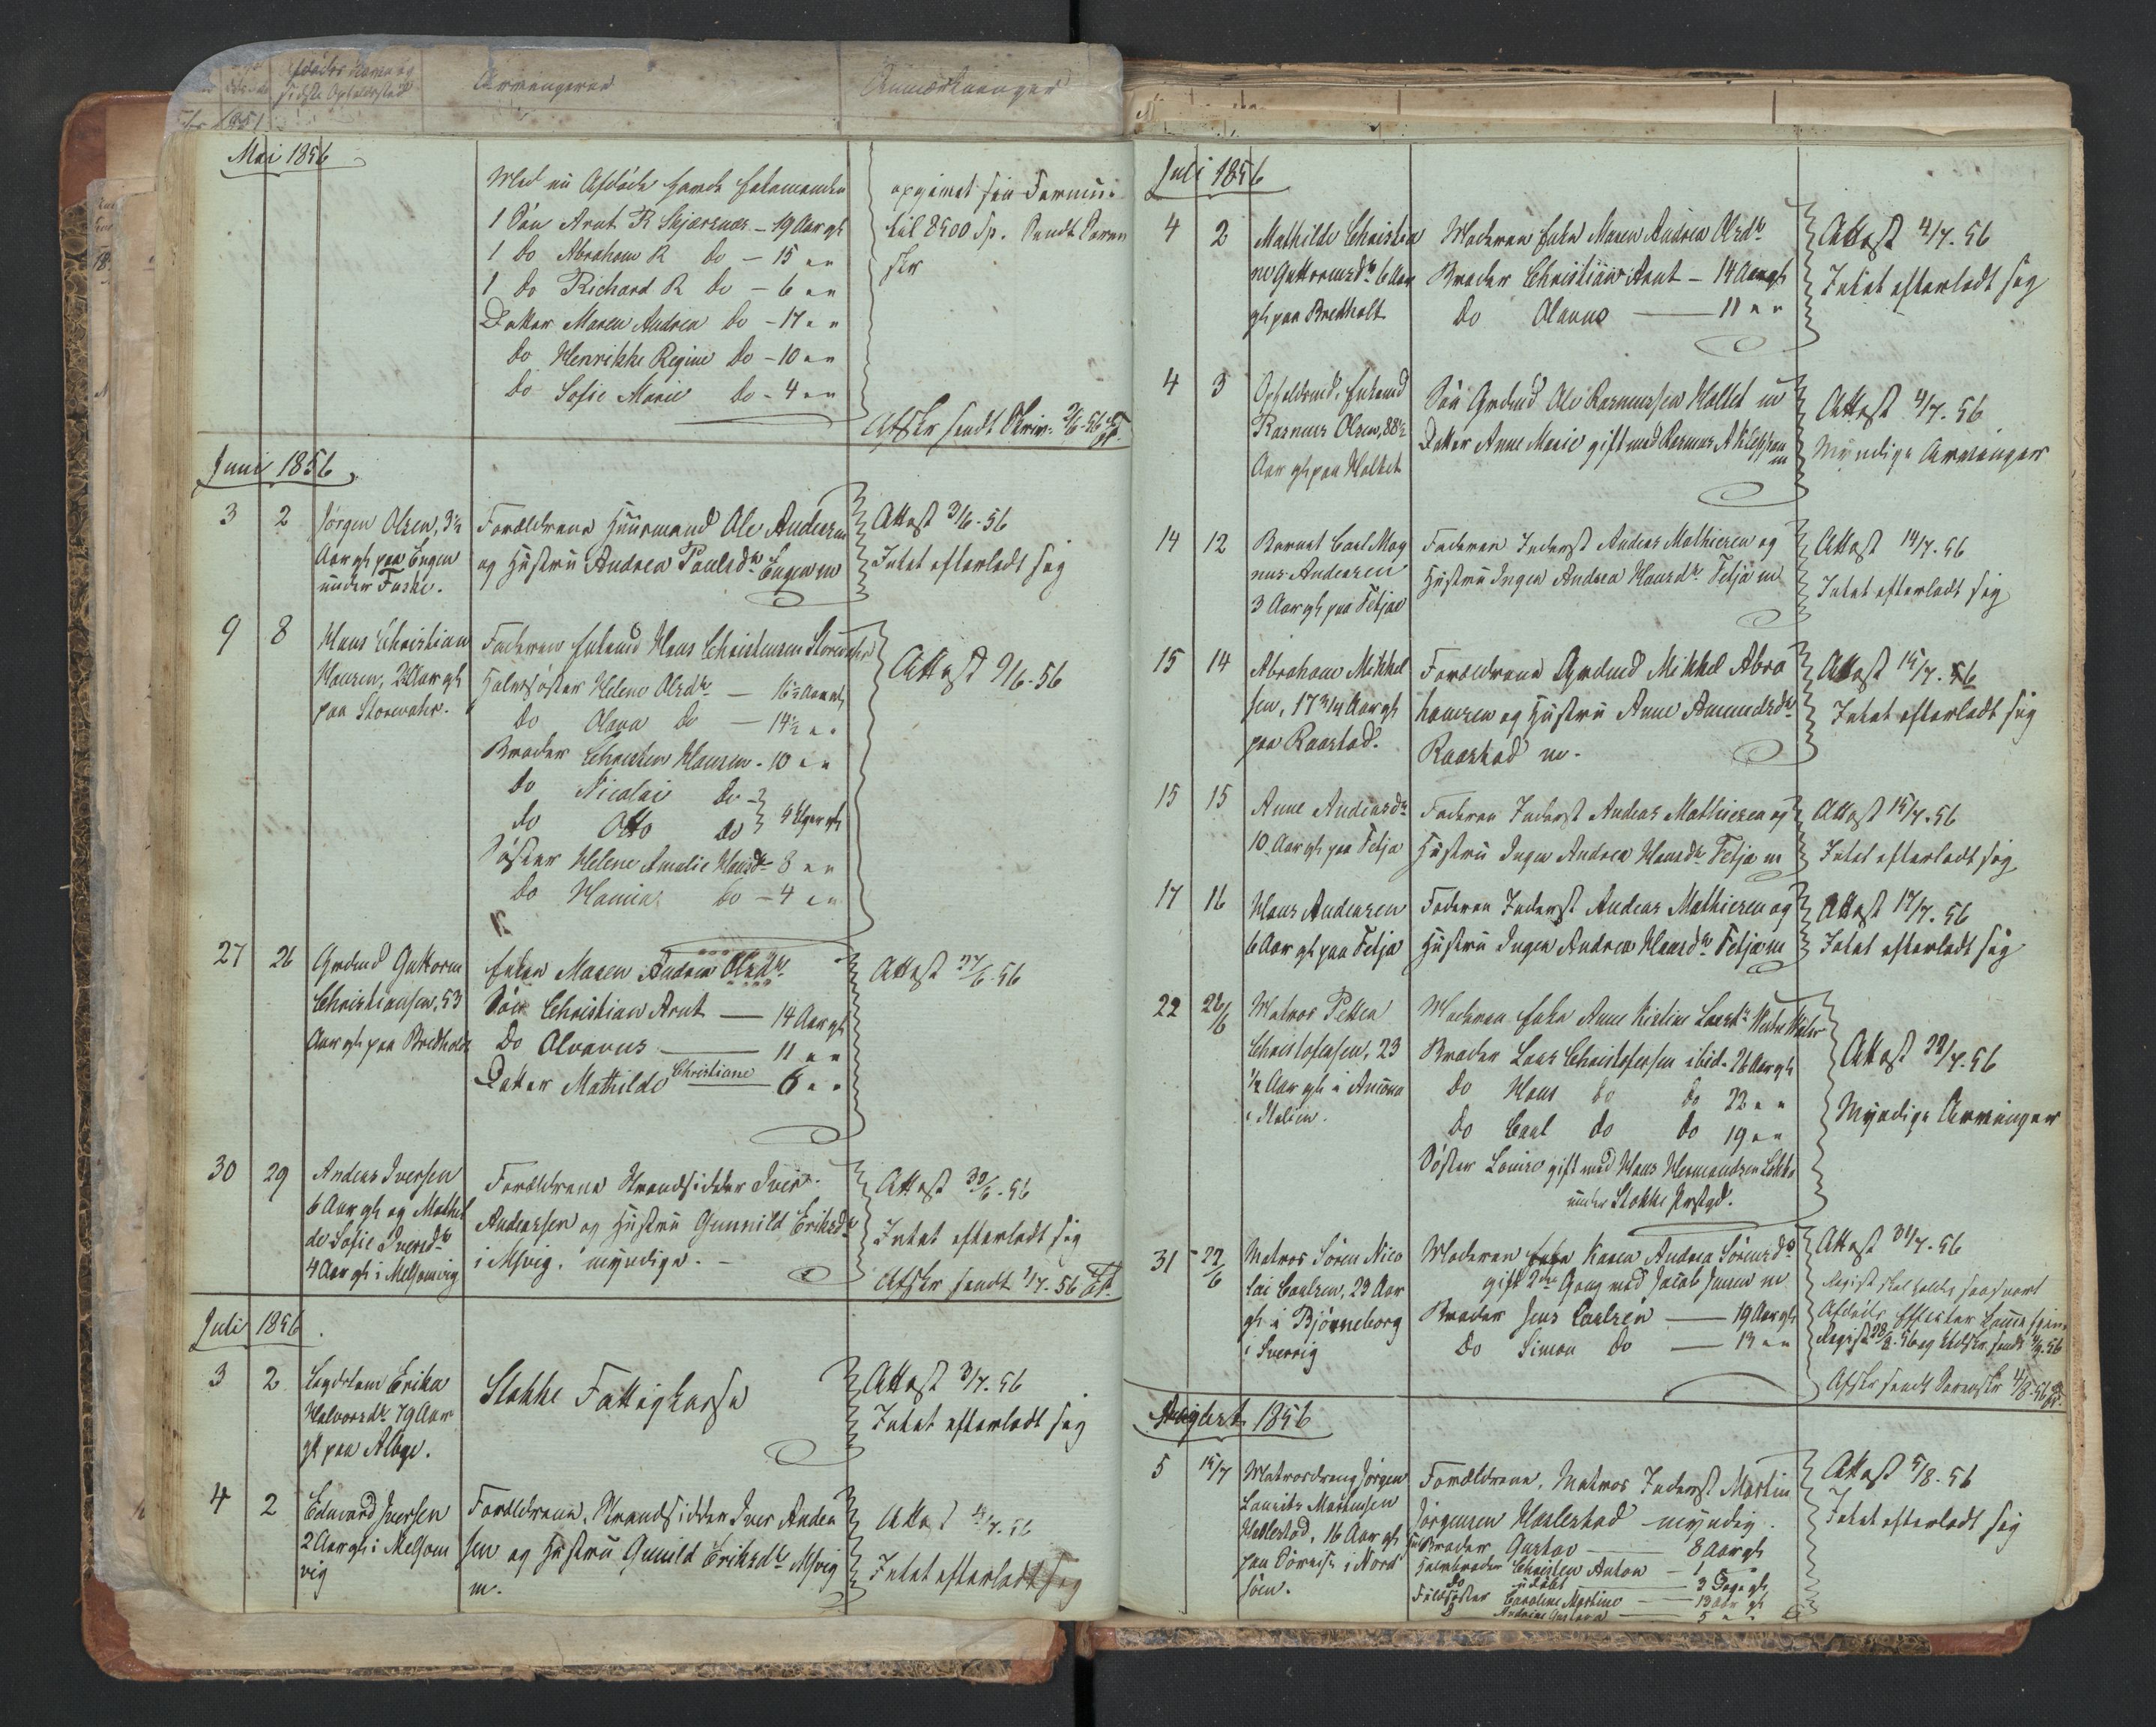 Afdødes Navn og
sidste Opholdssted
Arvingerne
Anmærkninger
1851
Mai 1856
Med nu Afdøde havde Enkemanden
1 Søn Arnt R Skjærsnæs - 19 Aar gl
1 do Abraham R do - 15 " "
1 do Richard R do - 6 " "
Datter Maren Andrea do - 17 " "
do Henrikke Regine do - 10 " "
do Sofie Marie do - 4 " "
opgivet sin Formue
til 2500 Sp. Sendt Soren
skr
Afskr sendt Skriv. 2/6-56
Juni 1856
3 2 Jørgen Olsen, 3½
Aar gl paa Engen
under Faske.
Forældrene Huusmand Ole Andersen
og Hustru Andrea Paulsdr Engen m
Attest 3/6-56
Intet efterladt sig
9 8 Hans Christian
Hansen, 2 Aar gl
paa Storevahr.
Faderen Enkemd Hans Christensen Storevahr
Halvsøster Helene Olsdr - 16½ Aar gl
do Olava do - 14½ " "
Broder Christen Hansen - 10 " "
do Nicolai do
do Otto do } 4 Uger gl
Søster Helene Amalie Hansdr 8 " "
do Hanna do - 4 " "
Attest 9/6-56
27 26 Grdmd Guttorm
Christiansen, 53
Aar gl paa Bredholt
Enken Maren Andrea Olsdr.
Søn Christian Arnt - 14 Aar gl
Do Olavus - 11 " "
Datter Mathilde Christiane 6 " "
Attest 27/6-56
30 29 Andreas Iversen
6 Aar gl og Mathil
de Sofie Iversdr
4 Aar gl i Melsomvig
Forældrene Strandsidder Iver
Anderssen og Hustru Gunnild Eriksdr
i Msvig. myndige. -
Attest 30/6-56
Intet efterladt sig
Afskr sendt 1/7-56
Juli 1856.
3 2 Lægdslem Erika
Halvorsdr 79 Aar
gl paa Albge.
Stokke Fattigkasse
Attest 3/7-56
Intet efterladt sig
4 2 Edward Iversen
2 Aar gl i Melsom
vig
Forældrene, Strandsidder Iver Ander
sen og Hustru Gunild Eriksdr Msvig
m.
Attest 4/7-56
Intet efterladt sig
Juli 1856
4 2 Mathilde Christia
ne Guttormsdr 6 Aar
gl paa Bredholt
Moderen Enke Maren Andrea Olsdr
Broder Christian Arnt - 14 Aar gl
do Olavus - 11 " "
Attest 4/7-56
Intet efterladt sig
4 3 Opholdsmd, Enkemd
Rasmus Olsen, 88½
Aar gl paa Holtet
Søn Grdmd Ole Rasmussen Holtet m
Datter Anne Marie gift med Rasmus
m
Attest 4/7-56
Myndige Arvinger
14 12 Barnet Carl Mag
nus Andersen
3 Aar gl paa Fetja
Faderen Inderst Andreas Mathiesen og
Hustru Ingen Andrea Hansdr Fetja m
Attest 14/7-56
Intet efterladt sig
15 14 Abraham Mikkel
sen, 17 Aar gl
paa Raastad.
Forældrene Grdmd Mikkel Abra
hamsen og Hustru Anne Amundsdr
Raastad m.
Attest 15/7-56
Intet efterladt sig
15 15 Anne Andreasdr
10 Aar gl paa Fetja
Faderen Inderst Andreas Mathiesen og
Hustru Ingen Andrea Hansdr Fetja m
Attest 15/7-56
Intet efterladt sig
17 16 Hans Andersen
6 Aar gl paa Fetja
Faderen Inderst Andreas Mathiesen og
Hustru Ingen Andrea Hansdr Fetja m
Attest 17/7-56
Intet efterladt sig
22 26/6 Matros Petter
Christofersen, 23
½ Aar gl i Ancona
i Italien.
Moderen Enke Anne Kirstine Larsdr
Broder Lars Christofersen ibid. 26 Aar gl
Do Hans do do 22 " "
Do Carl do do 19 " "
Søster Lovise gift med Hans Hermandsen Løkke
under Stokke Prstgd.
Attest 22/7-56
Myndige Arvinger
31 22/6 Matros Søren Nico
lai Carlsen, 23 Aar
gl i Bjørneborg
i Sverrig
Moderen Enke Karen Andrea Sørensdr
gift 2den Gang med Jacob Jensen m
Broder Jens Carlsen - 19 Aar gl
Do Simon do - 13 " "
Attest 31/7-56
Regist skal holdes saasnart
Afdødes Effecter komme hjem
Afskr sendt Sorenskr 4/8-56
August 1856
5 14/7 Matrosdreng Jørgen
Lauritz Martinsen
Haslestad, 16 Aar gl
paa Søreise i Nord
søen.
Forældrene, Matros Inderst Martin
Jørgensen Haslestad - myndig.
Broder Gustav - 8 Aar gl
Halvbroder Christen Anton - 1
do udøbt - 3 Dage gl
Fuldsøster Caroline Martine - 13 Aar gl
D Andrine Gustava - 5 " "
Attest 5/8-56
Intet efterladt sig